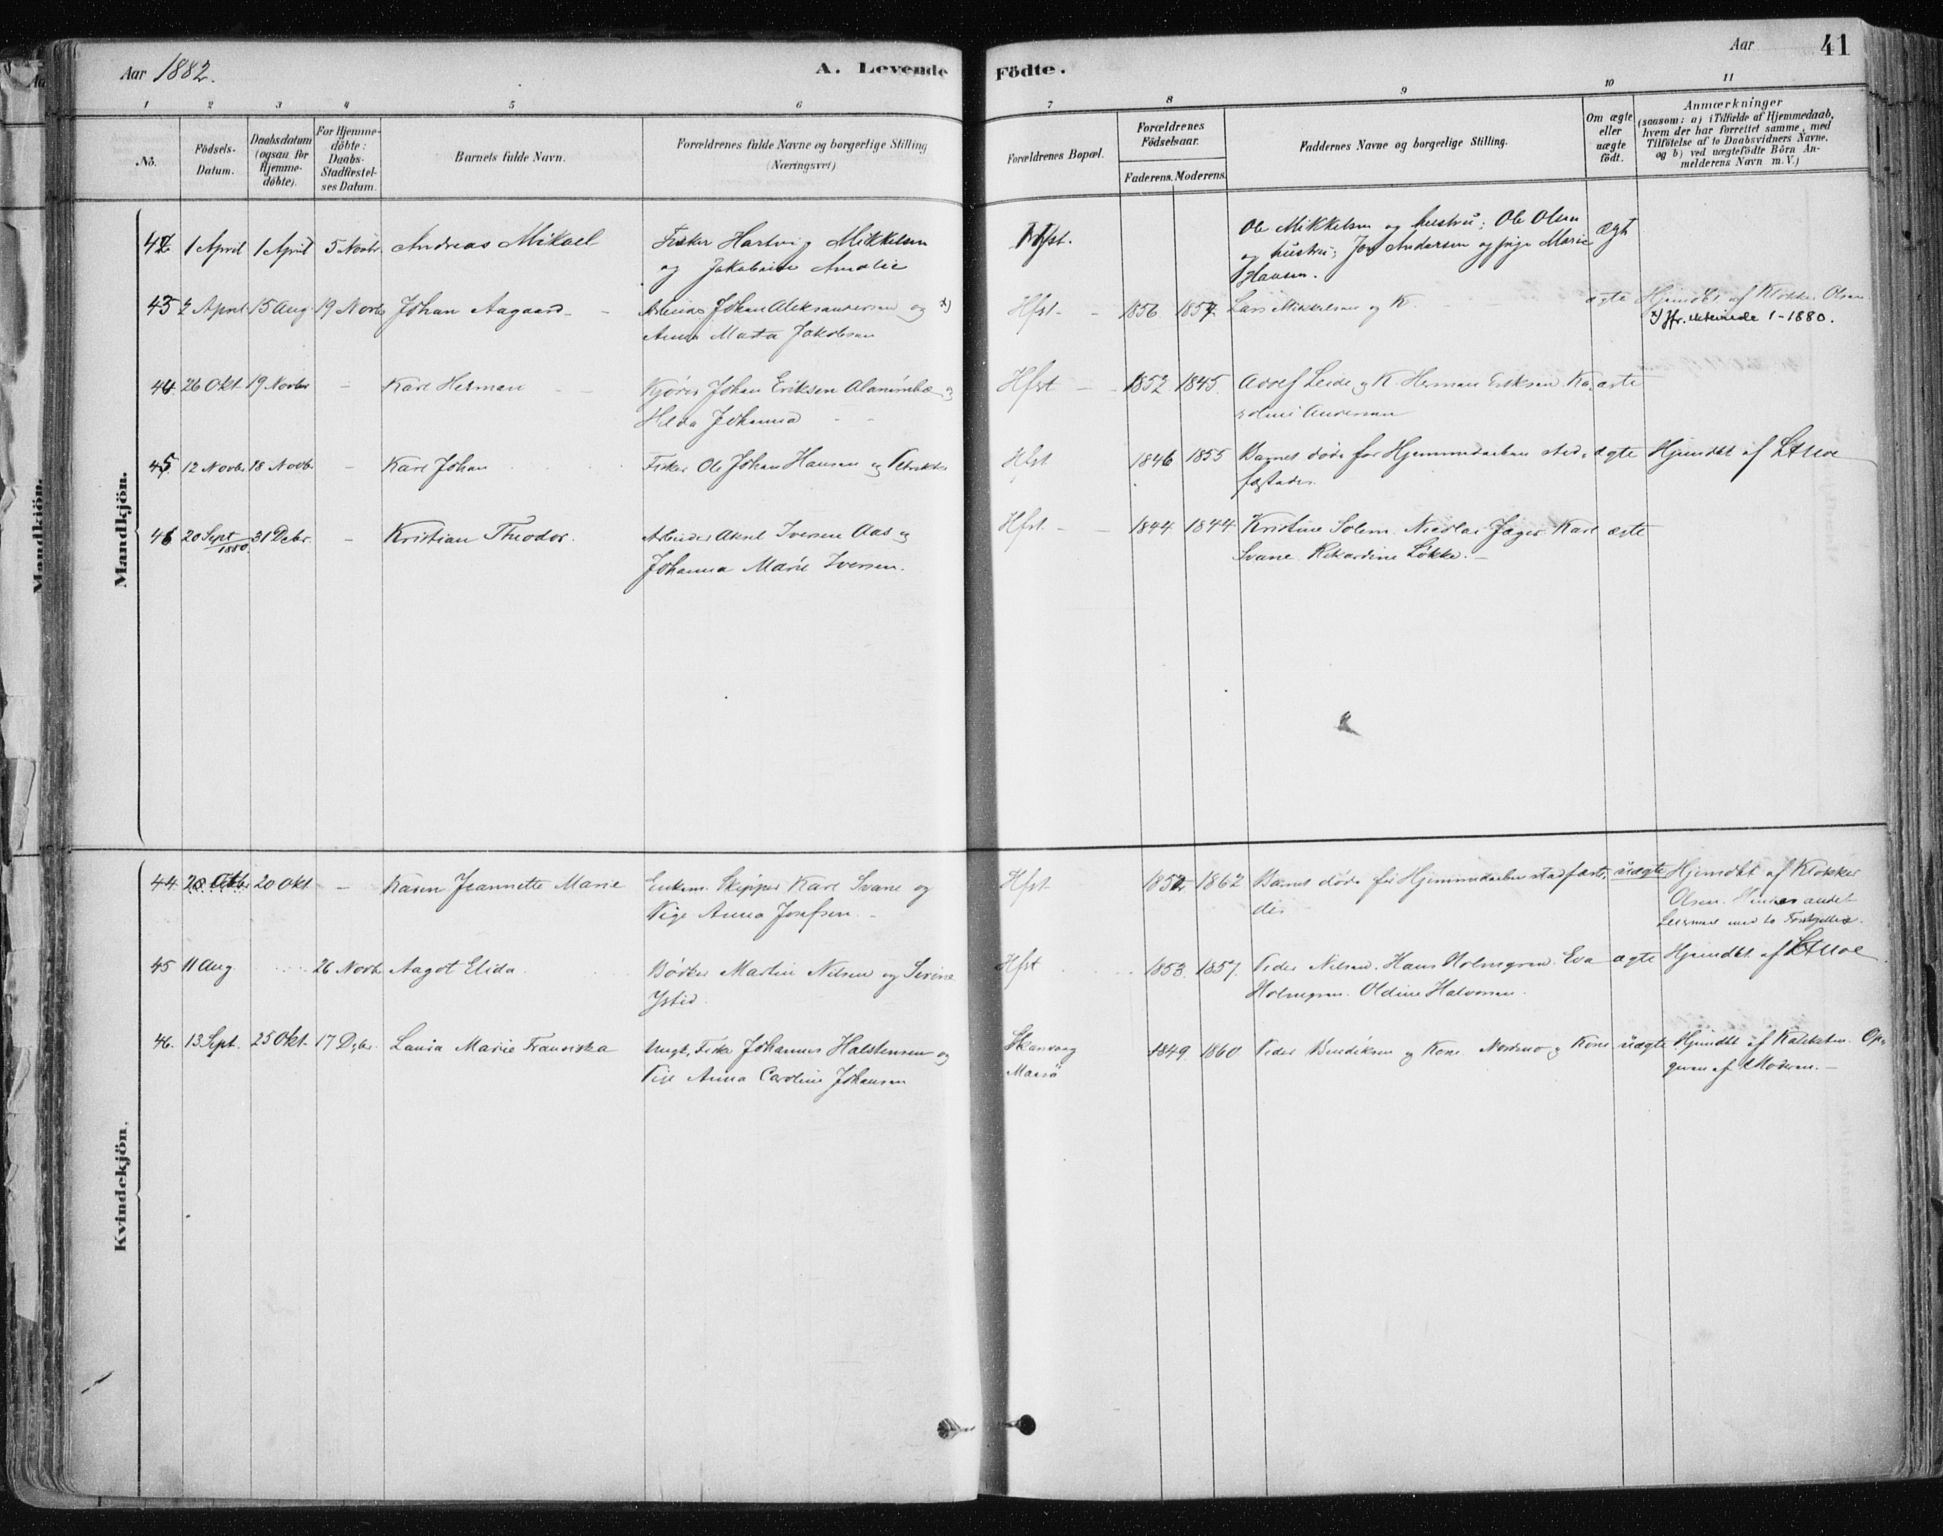 Aar 1882.
A. Levende Födte.
Aar
41
1 2 3 4 5 6 7 8 9 10 11
Nö.
Födsels-Datum.
Daabsdatum (ogsaa for Hjemme-döbte).
For Hjemme-döbte: Daabs-Stadfæstel-ses Datum.
Barnets fulde Navn.
Forældrenes fulde Navne og borgerlige Stilling (Næringsvei)
Forældrenes Bopæl.
Forældrenes Födselsaar.
Faderens. Moderens.
Faddernes Navne og borgerlige Stilling.
Om ægte eller uægte födt.
Anmærkninger (saasom: a) i Tilfælde af Hjemmedaab, hvem der har forrettet samme, med Tilföielse af to Daabsvidners Navne, og b) ved uægtefödte Börn Anmelderens Navn m. V.)
Mandkjön.
Mandkjön.
42 1 April 1 April 5 Novbr. Andreas Mikael Fisker Hartvig Mikkelsen Hfst. Ole Mikkelsen og hustru; Ole Olsen ægte
og Jakobine Amalie og hustru; Andersen og pige Marie
Hansen.
43 2 April 15 Aug 19 Novbr Johan Aagaard Arbeider Johan Aleksandersen og x) Hfst. 1856 1857 Lars Mikkelsen og K. ægte Hjemdbt af Klokker Olsen
Anna Marta Jakobsen x) 1-1880.
44. 26 Okt 19 Novbr - Karl Herman Johan Eriksen og Hfst 1852 1845. og K. Herman Eriksen ægte
Hilda Johanna Andersen
45 12 Novbr. 18 Novb. - Karl Johan Fisker Ole Johan Hansen og Hfst 1846 1855 Barnet døde før Hjemmedaaben stad- ægte Hjemdbt af
fæstedes.
46 20 Sept 1880. 31 Debr. - Kristian Theodor. Arbeider Aksel Iversen Aas og Hfst. 1844 1844. Kristine Solem. Nicolai Jæger. Karl ægte
Johanna Marie Iversen. Svane. Rikardine Løkke.
Kvindekjön.
44. 20 Okt - Karen Jeannette Marie Enkem. Skipper Karl Svane og Hfst 1862 Barnet døde før Hjemmedaaben stadfæste- uægte Hjemdbt af Klokker
Pige Anna Josefsen. des Olsen. andet
Leiermaal med to
45 11 Aug 26 Novb. Aagot Elida Bødker Martin Nilsen og Serine Hfst 1853. 1857. Peder Nilsen. Hans Holmgren. Eva ægte Hjemdbt. af
Holmgren. Oldine Halvorsen.
46. 13 Sept. 25 Okt. 17 Debr. Laura Marie Franciska Ungk. Fisker Johannes Halstensen og Skarsvaag 1849. 1860 Peder Bendiksen og Kone. Nordmo og Kone uægte Hjemdbt af Op-
Pige Anna Caroline Johansen Maasø given af Moderen.